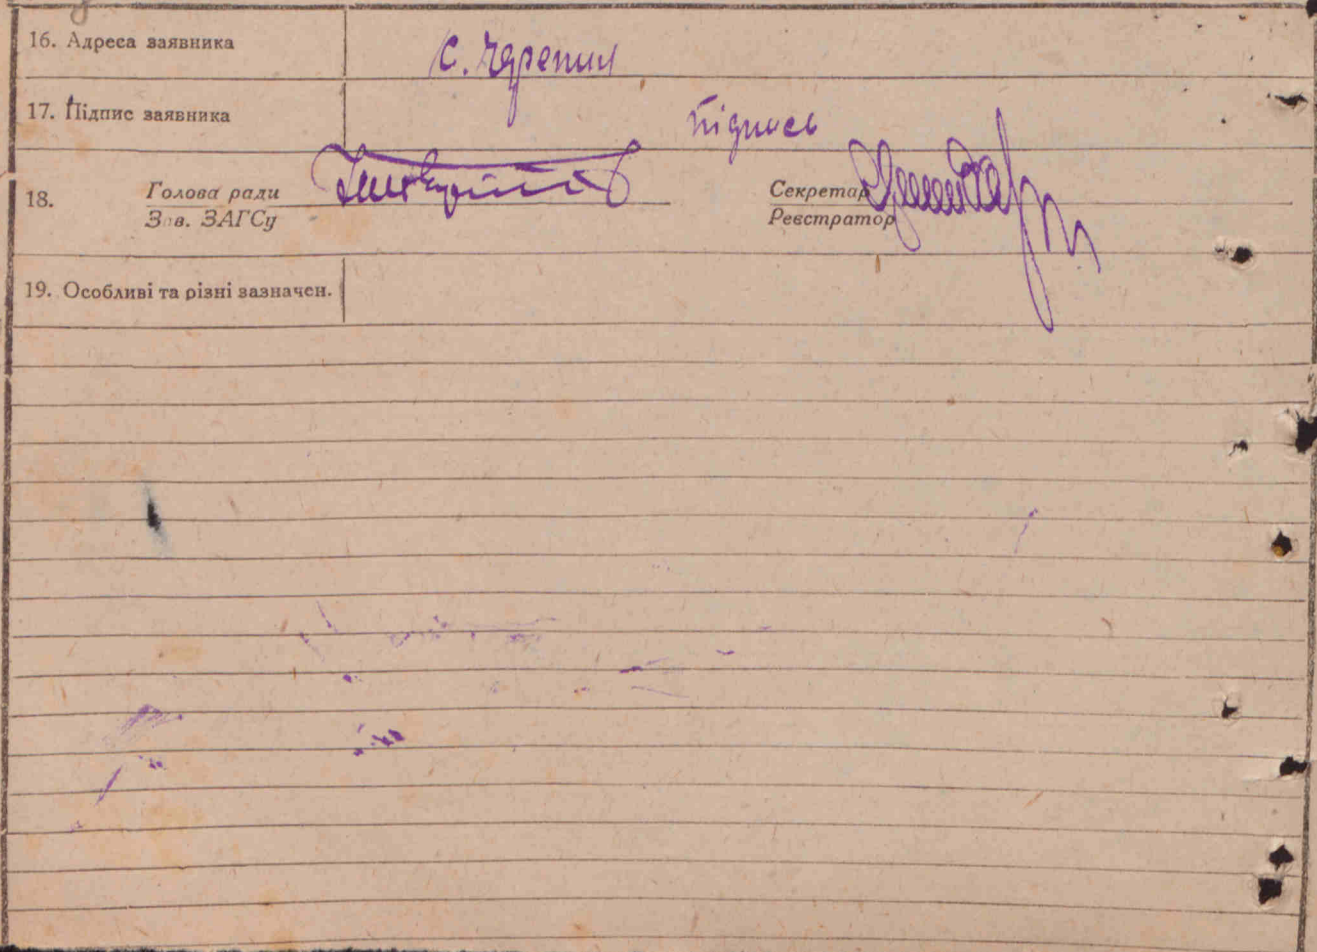 16. Адреса заявника с. Черепин
17. Підпис заявника підпись
18. Голова ради Секретар
Зав. ЗАГСу Реєстратор
19. Особливі та різні зазначен.